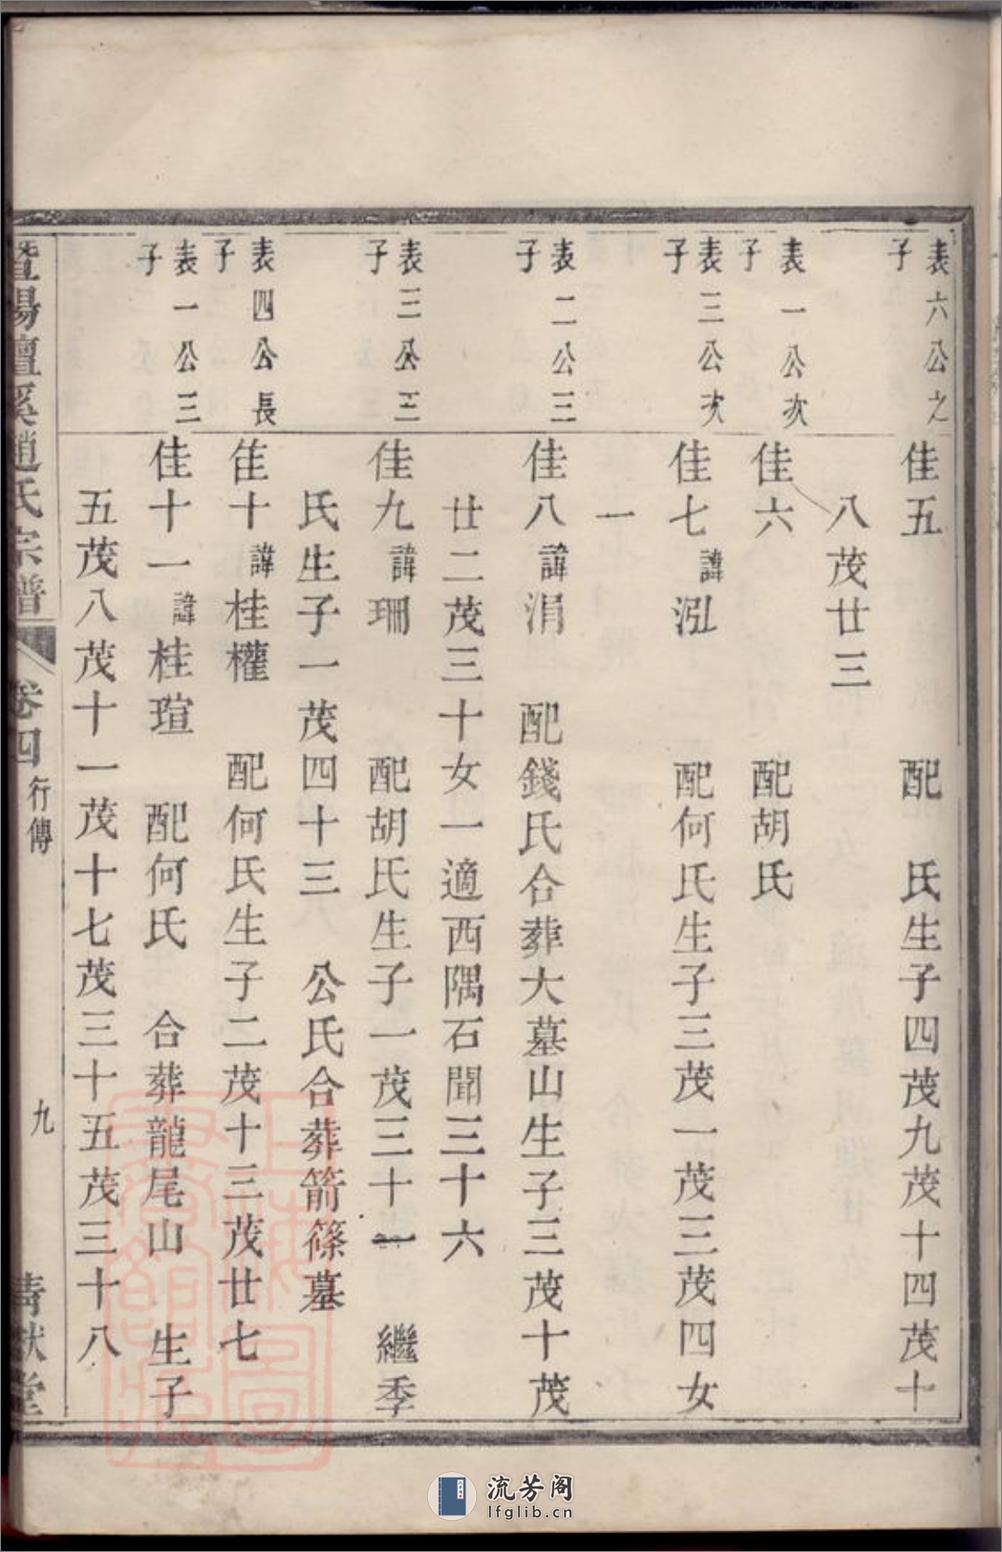 表六公之子
佳五 配 氏生子四茂九茂十四茂十
八茂廿三
表一公次子
佳六 配胡氏
表三公次子
佳七諱泓 配何氏生子三茂一茂三茂四女
一
表二公三子
佳八諱涓 配錢氏合葬大墓山生子三茂十茂
廿二茂三十女一適西隅石聞三十六
表三公三子
佳九諱珊 配胡氏生子一茂三十一 繼季
氏生子一茂四十三 公氏合葬箭篠墓
表四公長子
隹十諱桂權 配何氏生子二茂十三茂廿七
表一公三子
佳十一諱桂瑄 配何氏 合葬龍尾山 生子
五茂八茂十一茂十七茂三十五茂三十八
暨陽壇溪趙氏宗譜 卷四 行傳 九 清獻堂
流芳阁
lfglib.cn